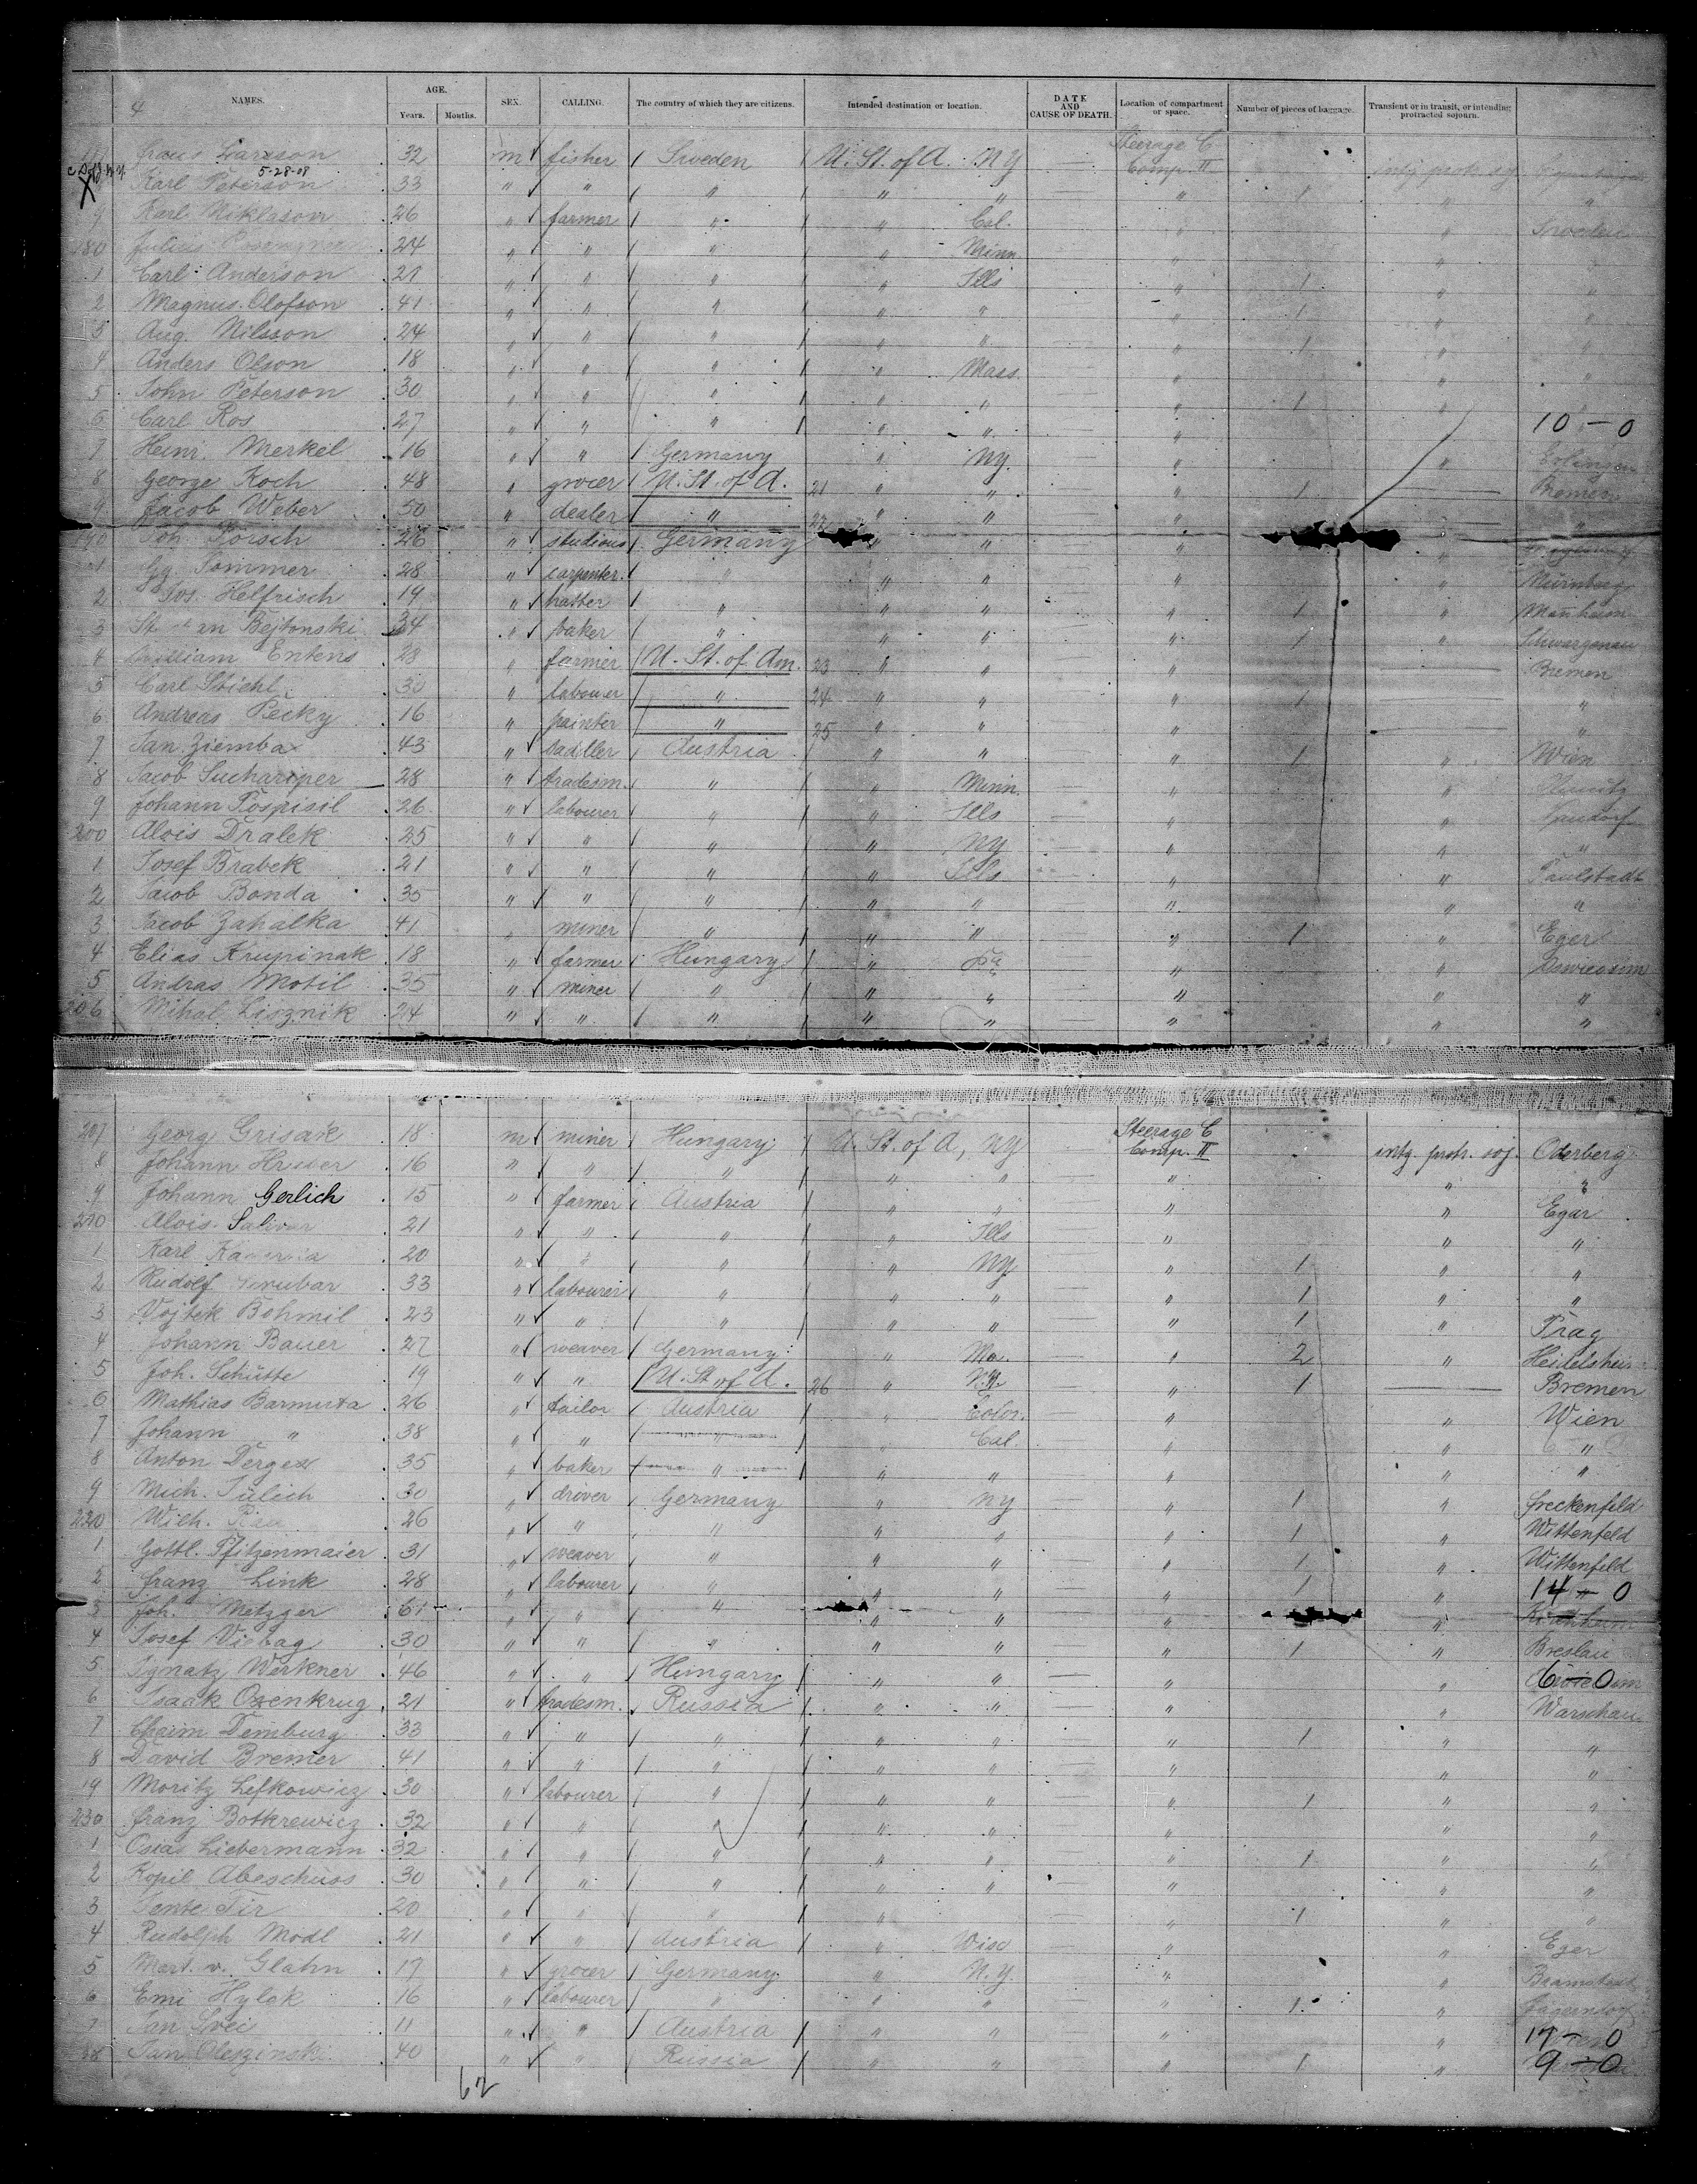 NAMES. AGE. SEX. CALLING. The country of which they are citizens. Intended destination or location. DATE AND CAUSE OF DEATH. Location of compartment or space. Number of pieces of baggage. Transient or in transit, or intending protracted sojourn.
4 Years. Months.
Larsson 32 m fisher Sweden U. St. of A. NY Steerage C Comp. II
5-28-08
Karl Peterson 33 " " " " " " 1 " "
9 Karl Niklason 26 " farmer " " Cal. " " Sweden
180 Julius 24 " " " " Minn. " " "
1 Carl Anderson 21 " " " " Ills " 1 " "
2 Magnus Olofson 41 " " " " " " 1 " "
3 Aug. Nilsson 24 " " " " " " 1 " "
4 Anders Olson 18 " " " " Mass. " " "
5 John Peterson 30 " " " " " " 1 " "
6 Carl Ros 27 " " " " " " 10 - 0
7 Heinr. Merkel 16 " " Germany " NY. " "
8 George Koch 48 " grocer U. St. of A. 21 " " " 1 Bremen
9 Jacob Weber 50 " dealer " 22 " " " "
190 Joh. Pörsch 26 " studious Germany " " " "
1 Gg. Sommer 28 " carpenter " " " " " Nürnberg
2 Jos. Helfrisch 19 " hatter " " " " 1 " Manheim
3 Bejtonski 34 " baker " " " " 1 "
4 William Entens 28 " farmer U. St. of Am. 23 " " " Bremen
5 Carl Stiehl 30 " labourer " 24 " " " 1 "
6 Andreas Pecky 16 " painter " 25 " " " "
7 Jan Ziemba 43 " sadller Austria " " " 1 " Wien
8 Jacob Suchariper 28 " tradesm. " " Minn. " "
9 Johann Pospisil 26 " labourer " " Ills " "
200 Alois Dralek 25 " " " " NY " " "
1 Josef Brabek 21 " " " " Ills " " Paulstadt
2 Jacob Bonda 35 " " " " " " " "
3 Jacob Zahalka 41 " miner " " " " 1 " Eger
4 Elias Krupinak 18 " farmer Hungary " Pa " "
5 Andras Motil 35 " miner " " " " " "
206 Mihal Lisznik 24 " " " " " " " "
207 Georg Grisak 18 m miner Hungary U. St. of A, NY Steerage C Comp. II intg. protr. soj. Oderberg
8 Johann 16 " " " " " " " "
9 Johann Gerlich 15 " farmer Austria " " " " Egar
210 Alois Salivar 21 " " " " Ills " " "
1 Karl 20 " " " " NY " 1 " "
2 Rudolf 33 " labourer " " " " 1 " "
3 Vojtek Bohmil 23 " " " " " " 1 " Prag
4 Johann Bauer 27 " weaver Germany " Mo. " 2 "
5 Joh. Schütte 19 " " U. St. of A. 26 " NY. " 1 Bremen
6 Mathias Barmuta 26 " tailor Austria " Color. " " Wien
7 Johann " 38 " " " Cal. " " "
8 Anton Derges 35 " baker " " " " " "
9 Mich. Jülich 30 " driver Germany " NY " 1 " Freckenfeld
220 Wilh. Rau 26 " " " " " " 1 " Wittenfeld
1 Gottl. Pfitzenmaier 31 " weaver " " " " 1 " Wittenfeld
2 Franz Link 28 " labourer " " " " 1 " 14 - 0
3 Joh. Metzger 61 " " " " " "
4 Josef Viebag 30 " " " " " " 1 " Breslau
5 Ignatz Werkner 46 " " Hungary " " " " 6 - 0
6 Isaak Ozenkrug 21 " tradesm. Russia " " " " Warschau
7 Chaim Demburg 33 " " " " " " 1 " "
8 David Bremer 41 " " " " " " "
19 Moritz Lefkowicz 30 " labourer " " " " 1 " "
230 Franz Botkrewicz 32 " " " " " " " "
1 Osias Liebermann 32 " " " " " " 1 " "
2 Kopil Abeschuss 30 " " " " " " " "
3 Tente Fir 20 " " " " " 1 " "
4 Rudolph Modl 21 " " Austria " Wisc " " Eger
5 Mart. v. Glahn 17 " grocer Germany " N.Y. " " Bramstedt
6 Emi Hylak 16 " labourer " " " " 1 " Jägerndorf
7 Jan 11 " " Austria " " " " 17 - 0
38 Jan Oleszinski 40 " " Russia " " " 1 " 9 - 0
62